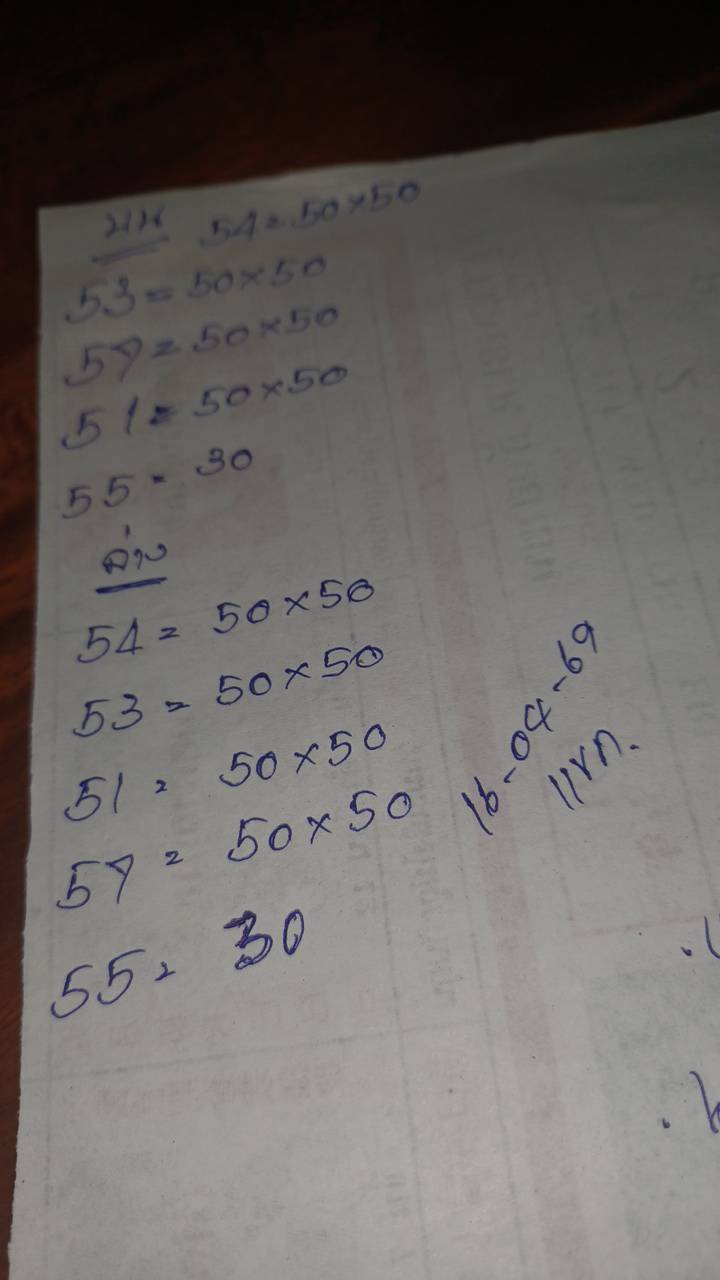 บน 54=50×50
53=50×50
57=50×50
51=50×50
55=30
ล่าง
54=50×50
53=50×50
51=50×50
57=50×50
55=30
16-04-69